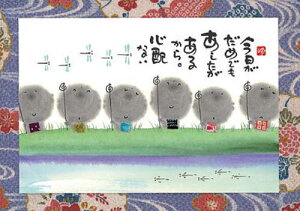 今日が
だめでも
あしたが
ある
から。
心配
ない